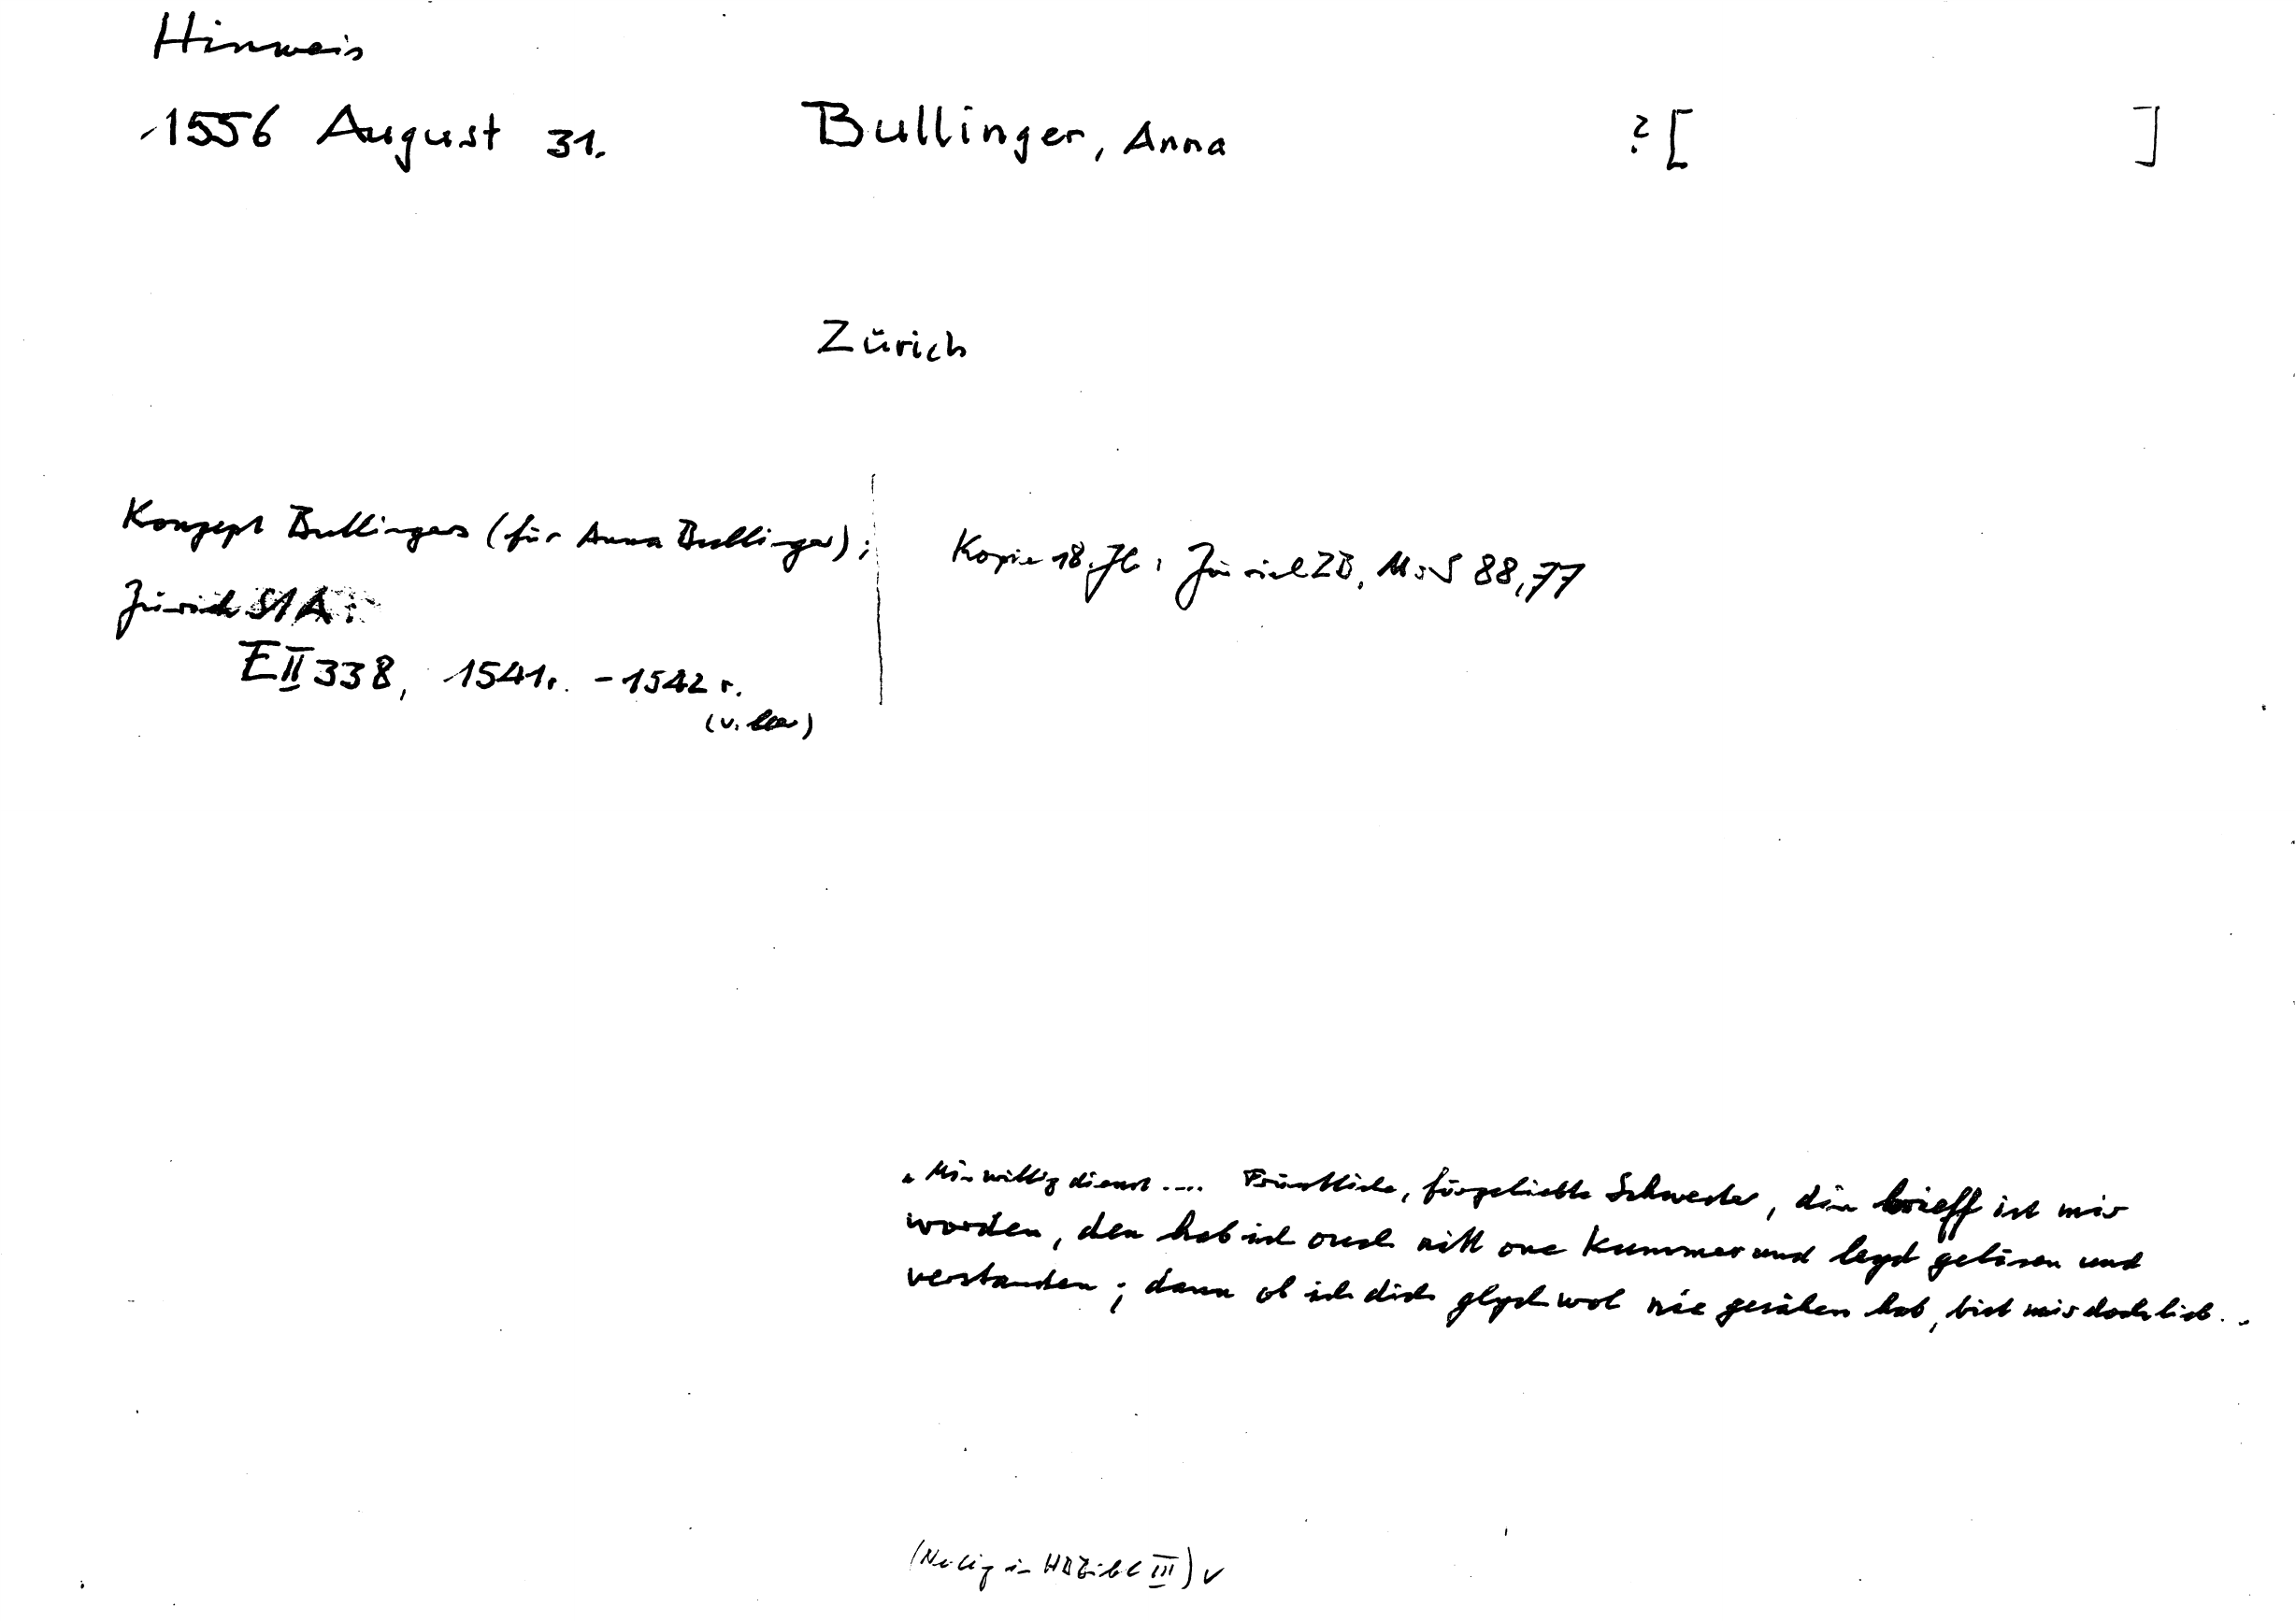 Hinweis
1556 August 31. Bullinger, Anna ? [ ]
Zürich
Konzept Bullingers (für Anna Bullinger);
Zürich StA:
E II 338, 1541r. - 1542r.
Kopie 18. Jh. Zürich ZB, Ms S 88,77
"Min willig dienst .... Früntliche, fürgeliebte Schwester, din brieff ist mir
worden, den hab ich ouch nitt one kummer und leyd geläsen und
verstanden; dann ob ich dich glych wol nie gesähen hab, bist mir doch lieb...
in HBBibl III) v